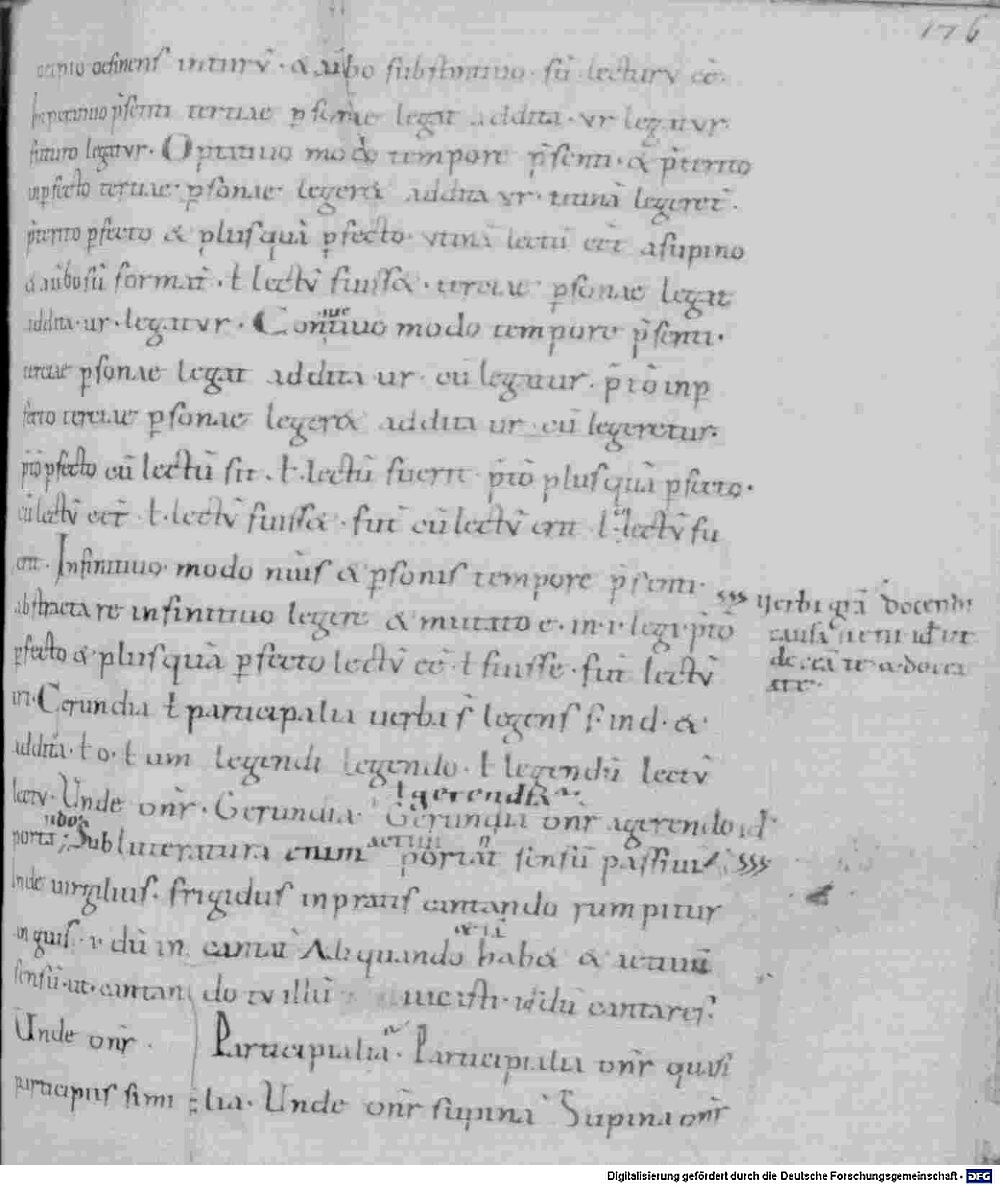 176
desinens in turū · & aūbo substantiuo · sū · lecturū eē ·
Imperatiuo p̄senti tertiae p̱sonae legat addita · ur legatur ·
futuro legatur · Optatiuo modo tempore p̄senti · & p̄terito
inp̱fecto tertiae · p̱sonae · legeret addita ur · utinā legeret̄ ·
p̄terito p̱fecto & plusquā p̱fecto · utinā lectū eēt̄ a supino
& aūbo sū format̄ · ł lectū fuisset · terciae p̱sonae legat
addita · ur · legatur · Coniūtiuo modo tempore p̄senti ·
terciae p̱sonae legat addita ur · cū legatur · p̄tō inp̱
fecto terciae p̱sonae legeret addita ur · cū legeretur ·
p̄tō p̱fecto cū lectū sit · ł · lectū fuerit p̄tō plusquā p̱fecto ·
cū lectū eēt̄ · ł · lectū fuisset · fut̄ cū lectū erit ł lectū fu
erit · Infinitiuo · modo nūis & p̱sonis tempore p̄senti ·
abstracta re infinitiuo legere & mutato e · in · i · legi · p̄tō
p̱fecto & · plusquā p̱fecto lectū eē · ł fuisse · fut̄ lectū
iri · Gerundia ł participalia uerba s̄ legens s · in d · &
addita · ł o · ł um legendi legendo · ł legendū lectū
lectu · Unde onr̄ · Gerundia · Gerundia onr̄ a gerendo id
! gerendi
porta; Sub litteratura enim portat sensū passiuū
actiui n̄
Inde uirgilius · frigidus in pratis cantando rumpitur
anguis · i · dū in cantat̄ Aliquando habet & actiuū
sensū · ut · cantando tu illū uicisti · id dū cantares ·
Unde onr̄ · Participialia · Participialia onr̄ quasi
participiis similia · Unde onr̄ supina · Supina onr̄
Uerbi grā docendi
causa ueni
Digitalisierung gefördert durch die Deutsche Forschungsgemeinschaft - DFG